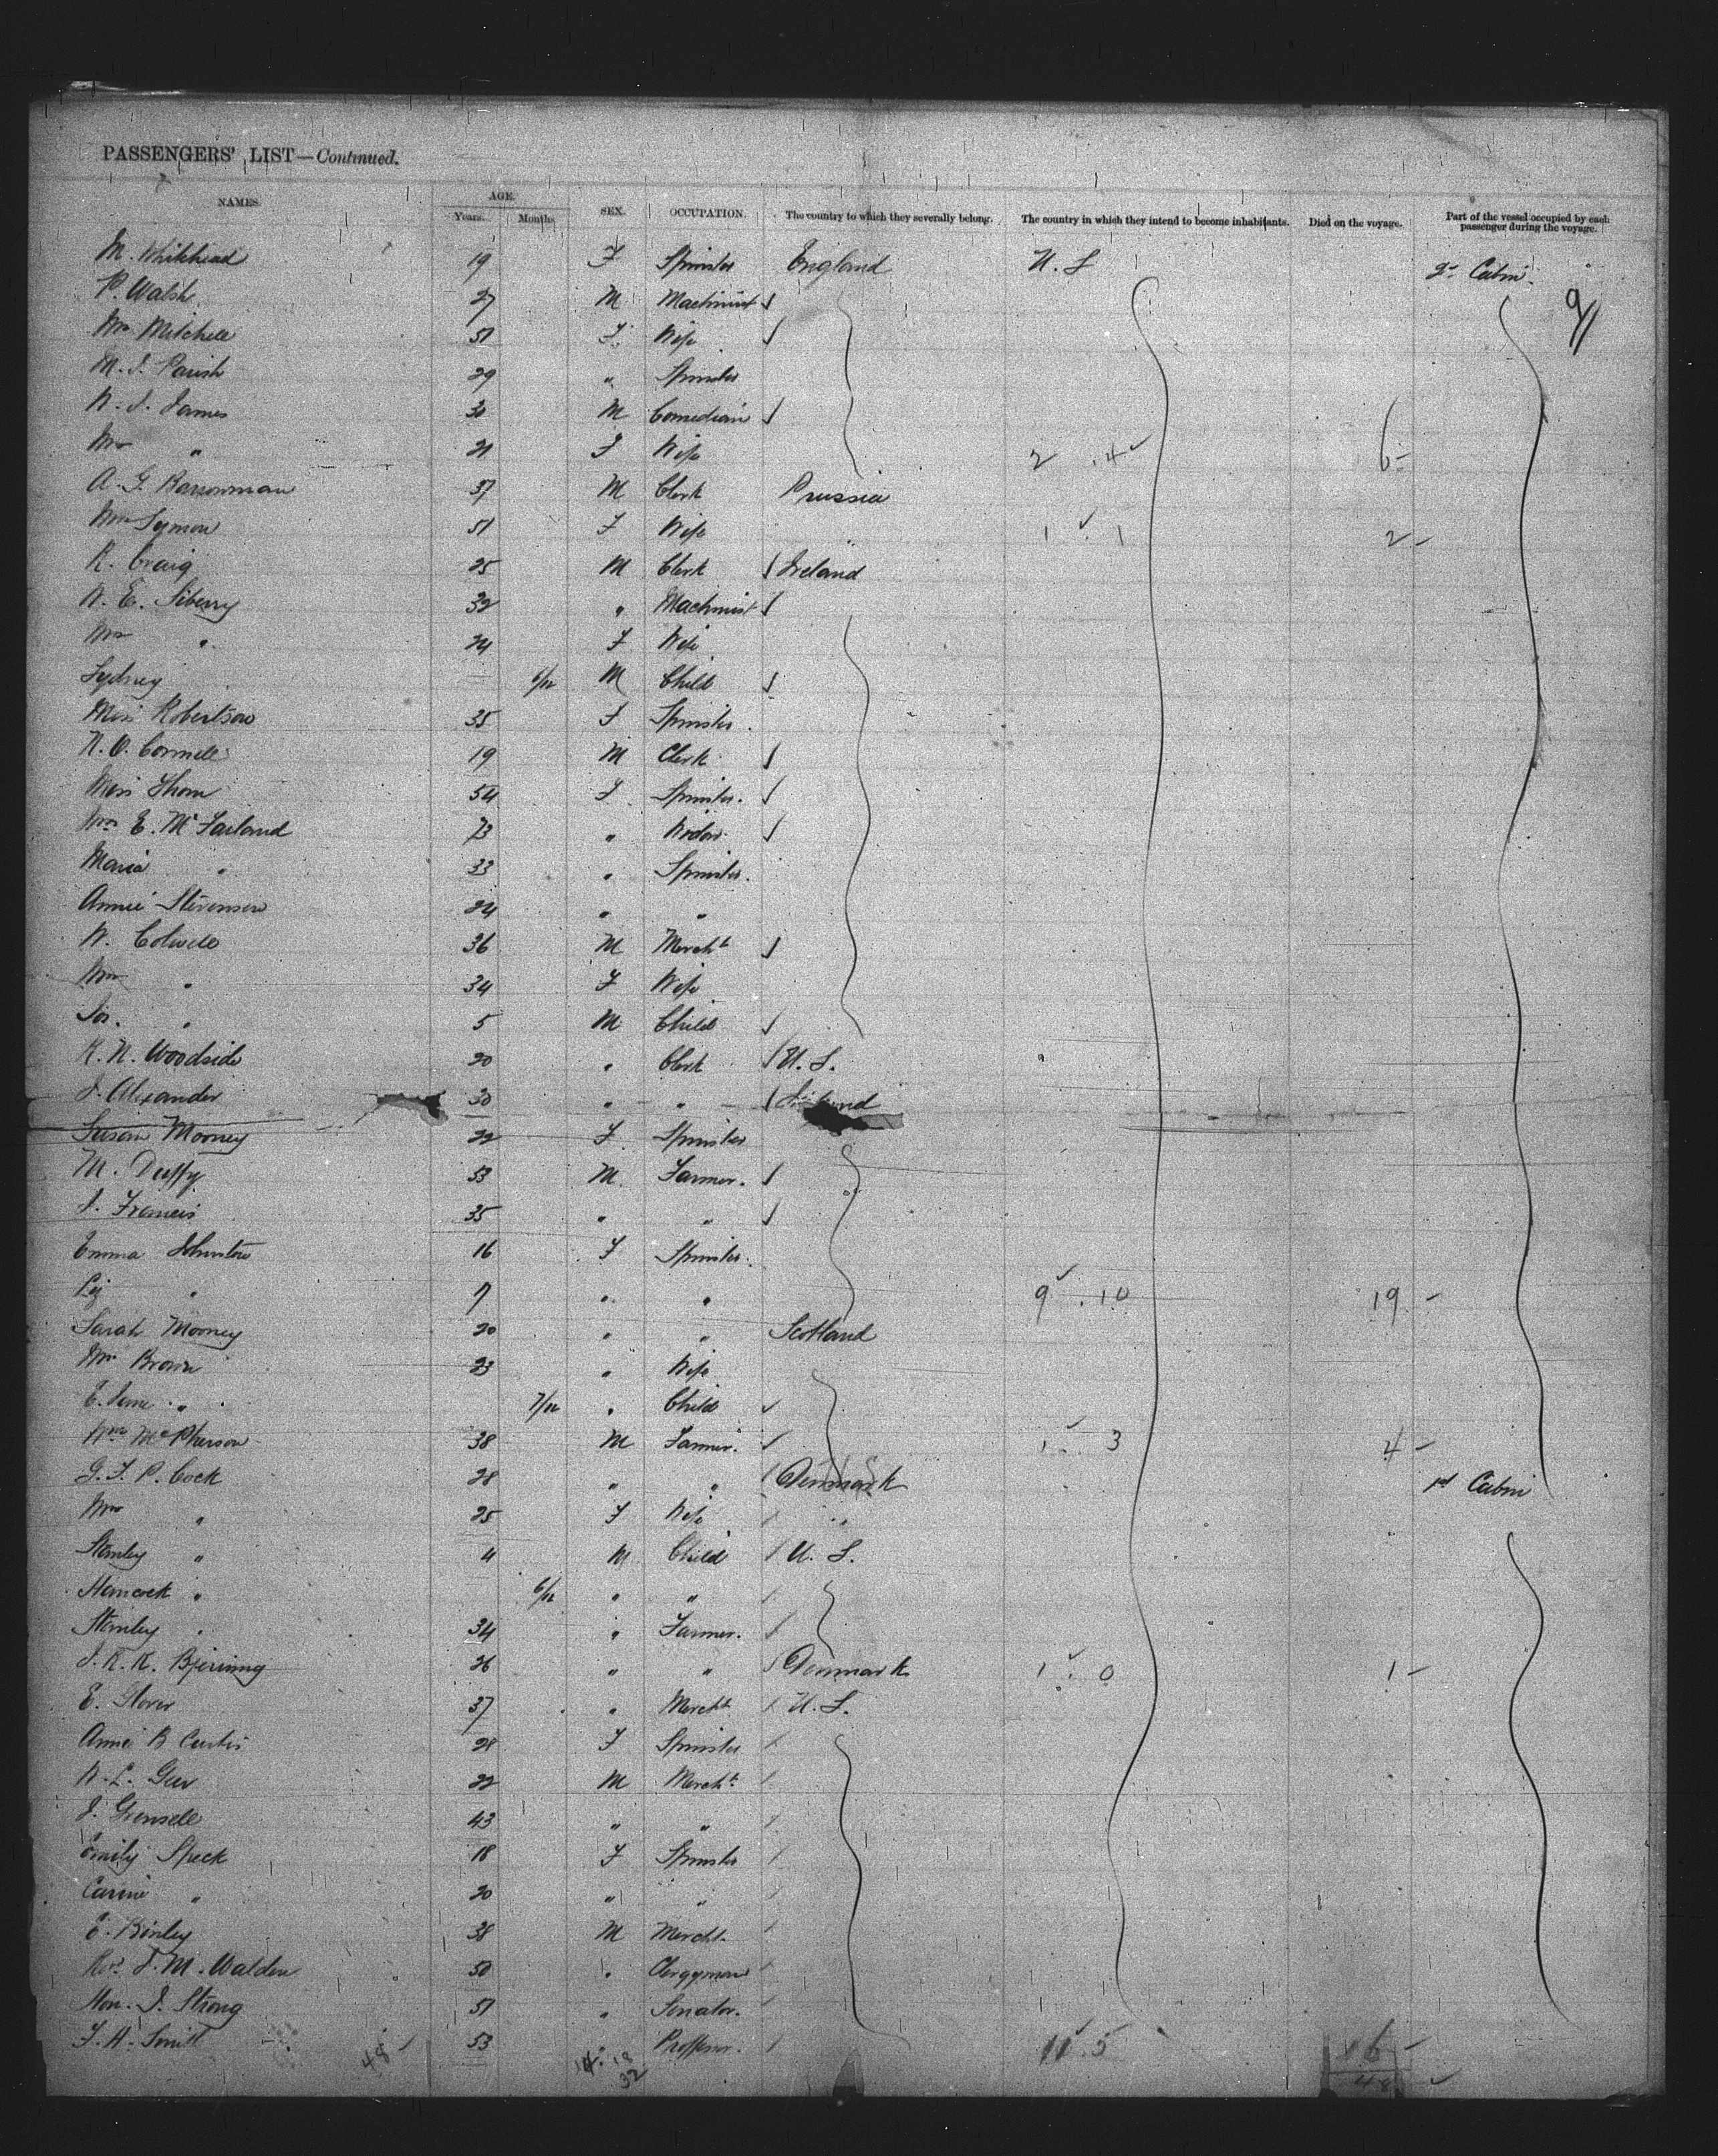 PASSENGERS' LIST—Continued.
NAMES. AGE. Years. Months. SEX. OCCUPATION. The country to which they severally belong. The country in which they intend to become inhabitants. Died on the voyage. Part of the vessel occupied by each passenger during the voyage.
M. Whitehead 19 F Spinster England U.S 2nd Cabin
P. Walsh 27 M Machinist 9
Mrs Mitchell 51 F Wife
M. J. Parish 29 " Spinster
W. J. James 30 M Comedian
Mrs " 21 F Wife 2 . 4 6
A. G. Barrowman 37 M Clerk Prussia
Mrs Symon 51 F Wife 1 . 1 2
R. Craig 25 M Clerk Ireland
W. E. Siberry 32 " Machinist
Mrs " 24 F Wife
Sydney 6/12 M Child
Miss Robertson 35 F Spinster
N. O. Connell 19 M Clerk
Miss Thom 54 F Spinster
Mrs E. McFarland 73 " Widow
Maria " 33 " Spinster
Annie Stevenson 24 " "
W. Colwell 36 M Mercht
Mrs " 34 F Wife
Jos. " 5 M Child
R. N. Woodside 20 " Clerk U.S.
J. Alexander 30 " "
Susan Mooney 22 F Spinster
M. Duffy 53 M Farmer
J. Francis 35 " "
Emma Johnston 16 F Spinster
Liz " 7 " " 9 . 10 19
Sarah Mooney 20 " " Scotland
Mrs Brown 23 " Wife
E. Jane " 7/12 " Child
Wm McPherson 38 M Farmer 1 . 3 4
G. F. P. Cock 28 " " Denmark 1st Cabin
Mrs " 25 F Wife "
Stanley " 4 M Child U. S.
Hancock " 6/12 " "
Stanley " 34 " Farmer.
J. K. K. Bjerring 26 " " Denmark 1 . 0 1
E. Glover 37 " Mercht U.S.
Annie B Curtis 28 F Spinster
W. L. Geer 22 M Mercht
J. Grensell 43 " "
Emily Speck 18 F Spinster
Carrie " 20 " "
E. Binley 38 M Mercht
Rev. J. M. Walden 50 " Clergyman
Hon. J. Strong 51 " Senator.
F. H. Smith 53 " Professor. 11 . 5 16
48 14 . 18 48
32